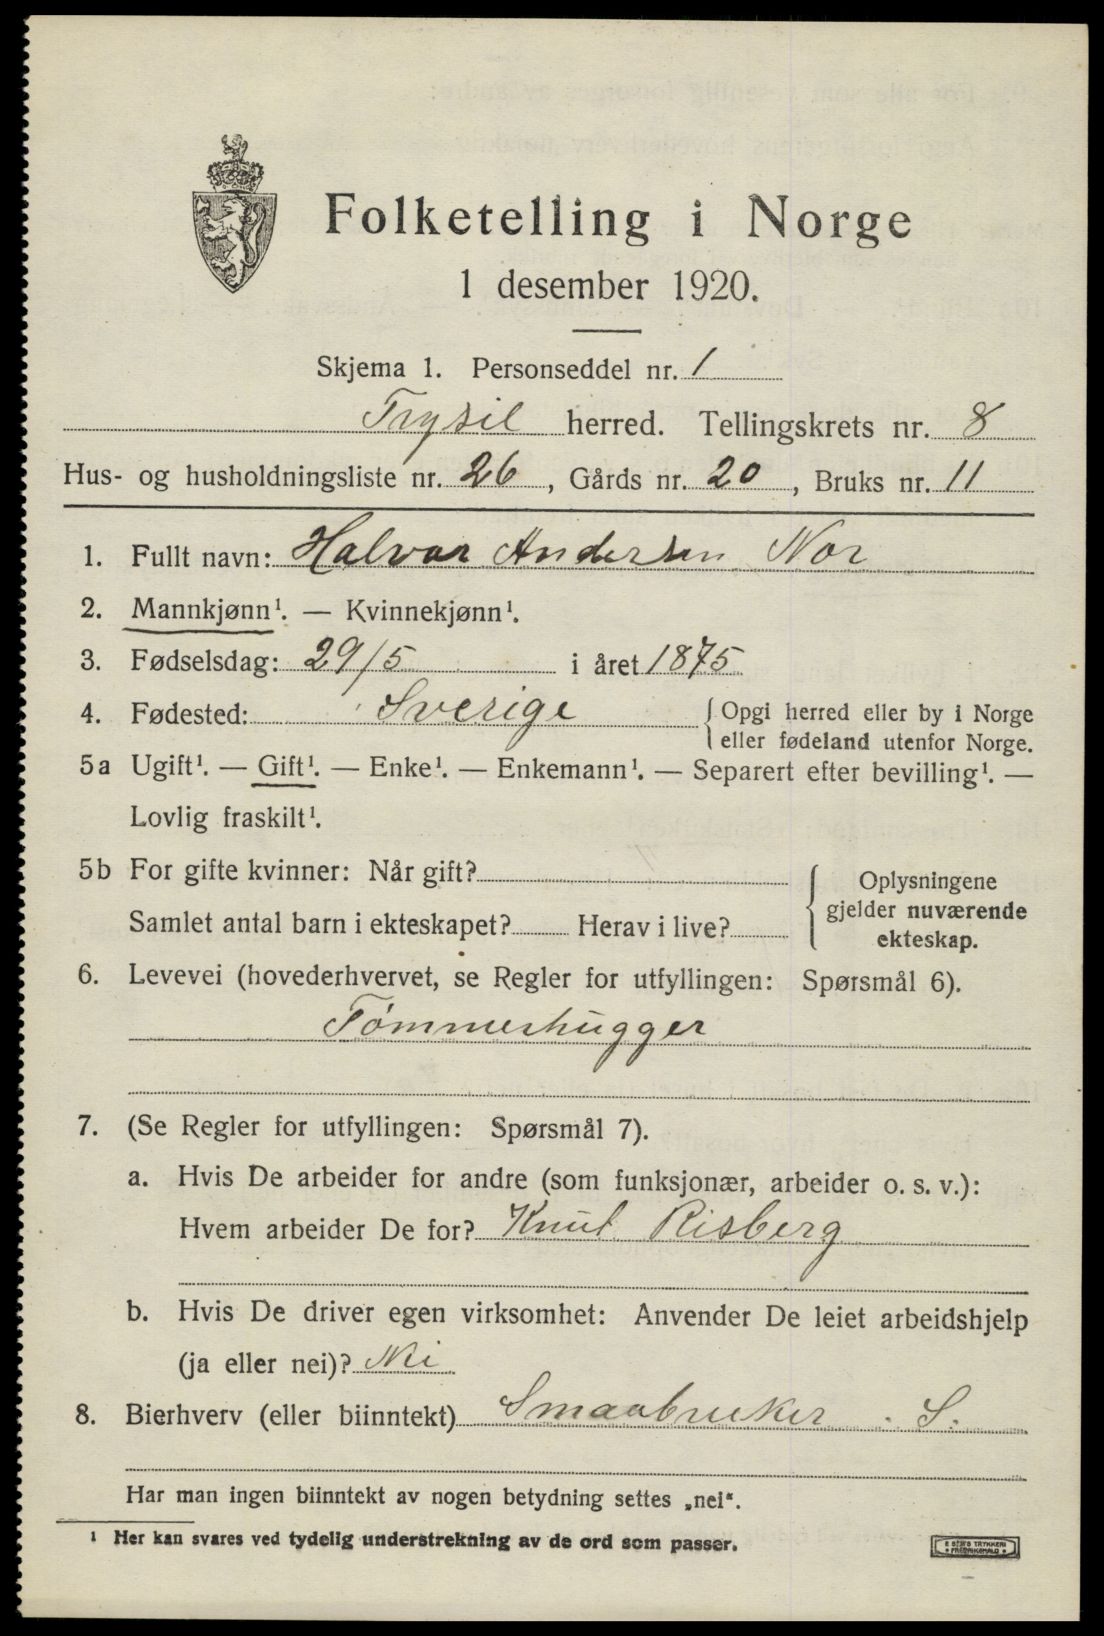 Folketelling i Norge
1 desember 1920.
Skjema 1. Personseddel nr. 1
Trysil herred. Tellingskrets nr. 8
Hus- og husholdningsliste nr. 26, Gårds nr. 20, Bruks nr. 11
1. Fullt navn: Halvor Andersen Nor
2. Mannkjønn¹. — Kvinnekjønn¹.
3. Fødselsdag: 29/5 i året 1875
4. Fødested: Sverige {Opgi herred eller by i Norge
eller fødeland utenfor Norge.
5a Ugift¹. — Gift¹. — Enke¹. — Enkemann¹. — Separert efter bevilling¹. —
Lovlig fraskilt¹.
5b For gifte kvinner: Når gift?
Samlet antal barn i ekteskapet? Herav i live?
{Oplysningene
gjelder nuværende
ekteskap.
6. Levevei (hovederhvervet, se Regler for utfyllingen: Spørsmål 6).
Tømmerhugger
7. (Se Regler for utfyllingen: Spørsmål 7).
a. Hvis De arbeider for andre (som funksjonær, arbeider o. s. v.):
Hvem arbeider De for? Knut Risberg
b. Hvis De driver egen virksomhet: Anvender De leiet arbeidshjelp
(ja eller nei)? Nei
8. Bierhverv (eller biinntekt) Smaabruker . S.
Har man ingen biinntekt av nogen betydning settes „nei“.
¹ Her kan svares ved tydelig understrekning av de ord som passer.